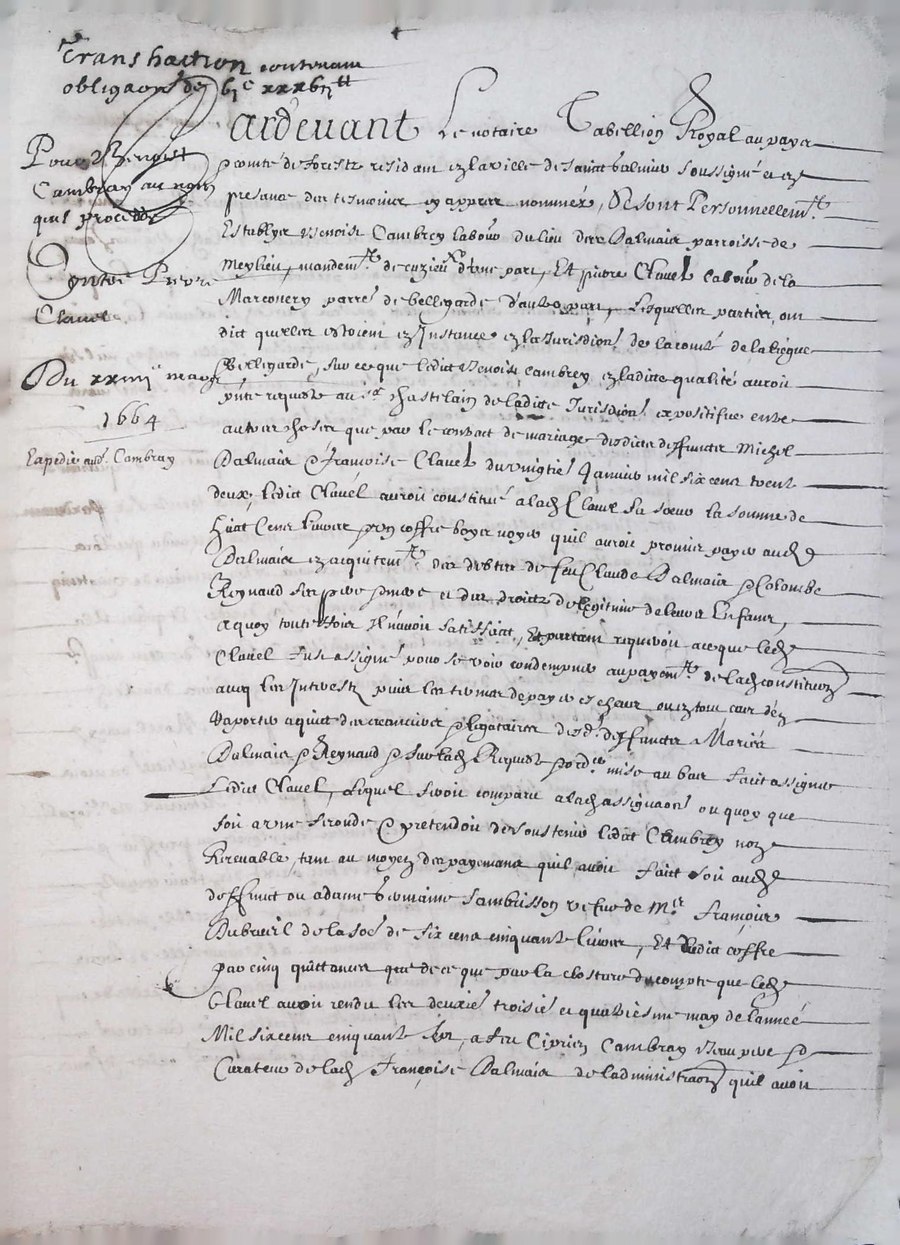 Transhaction contenant
obligaon de vi c xxxvii tt
Pour Benoist
Cambray au nom
quil procede
Contre Pierre
Clavel
Du xxiiii mars
1664
Expedié aud. Cambray
Pardevant Le notaire Tabellion Royal au pays
comté de forestz residant en la ville de sainct galmier soussigné et en
presance des tesmoins en appres nommés, Se sont Personnellemt
Establys Benoist Cambrey labour du lieu des Dalmais parroisse de
Meylieu, mandemt de cuzieu d'une part, Et pierre Clavel labour de la
Marconery parre de bellegarde d'autre part, Lesquelles parties ont
dict quelles estoient en Instance en la Jurisdion de la comté de la
Bellegarde, sur ce que ledict Benoist Cambrey en ladicte qualité auroit
pnté requeste au sr chastelain de ladicte Jurisdion expositifve entre
autres choses que par le contract de mariage desdicts deffuncts Michel
Dalmais & françoise Clavel du vingtie Janvier mil six cens trent
deux, ledict Clavel auroit constitué a lad Clavel sa soeur la somme de
huict Cens livres & un coffre boys noyer quil auroit promis payer aud
Dalmais en acquitemt des debtes de feu Claude Dalmais & Colombe
Reynaud ses pere & mere et des droictz de legitime de leurs Enfans,
a quoy touteffois Il n'avoit satisfaict, Et partant requeroit a ce que led
Clavel fust assigné pour se voir condempner au payemt de lad constituon
avec les Interestz puis les termes de payer escheus ou en tout cas d'en
raporter acquict des creanciers & legataires desd. deffuncts Mariés
Dalmais & Reynaud & sur lad Requeste & ordce mise au bas faict assigner
Ledict Clavel, Lequel seroit comparu a lad assignaon ou quoy que
soit a terme seconde & pretendoit de soustenir ledict Cambrey non
Recevable, tant au moyen des payemans quil avoit faict soit aud
deffunct ou a dame Germaine Sambisson vefve de Mr françois
Dubreuil de la soe de six cens cinquante livres, Et dudict coffre
par cinq quittances que de ce que par la closture du compte que led
Clavel avoit rendu les deuxie troisie et quatriesme may de l'année
Mil six cens cinquante, a feu Ciprien Cambray Beau pere &
Curateur de lad françoise Dalmais de l'administraon quil avoit